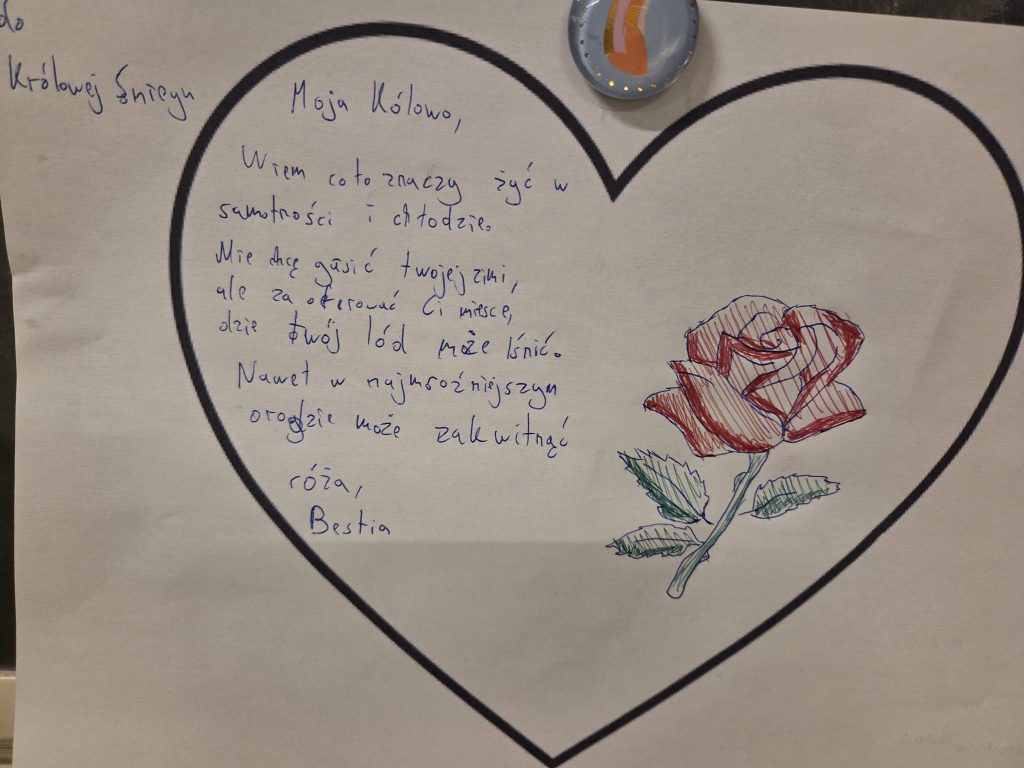 do
Królowej Śniegu
Moja Kólowo,
Wiem co to znaczy żyć w
samotności i chłodzie.
Nie chcę gasić twojej zimi,
ale za oferować Ci miesce,
dzie twój lód może lśnić.
Nawet w najmroźniejszym
orogdzie może zakwitnąć
róża,
Bestia